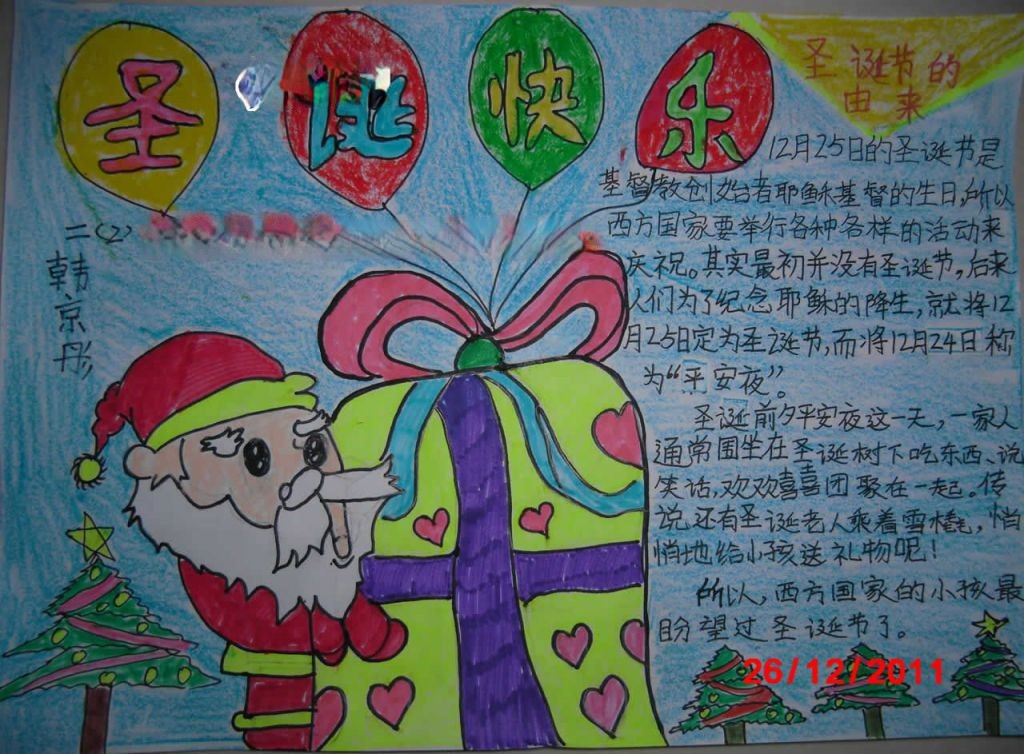 圣诞快乐
圣诞节的
由来
12月25日的圣诞节是
基督教创始者耶稣基督的生日,所以
西方国家要举行各种各样的活动来
庆祝。其实最初并没有圣诞节,后来
人们为了纪念耶稣的降生,就将12
月25日定为圣诞节,而将12月24日称
为“平安夜”。
圣诞前夕平安夜这一天,一家人
通常围坐在圣诞树下吃东西、说
笑话,欢欢喜喜团聚在一起。传
说还有圣诞老人乘着雪橇,悄
悄地给小孩送礼物呢!
所以,西方国家的小孩最
盼望过圣诞节了。
二(2)
韩京彤
26/12/2011